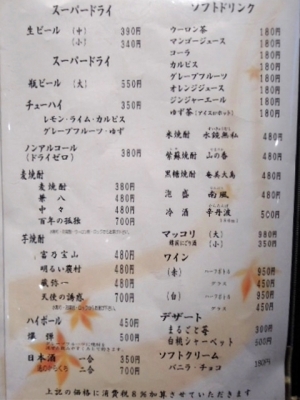 スーパードライ
生ビール (中) 390円
(小) 340円
スーパードライ
瓶ビール (大) 550円
チューハイ 350円
レモン・ライム・カルピス
グレープフルーツ・ゆず
ノンアルコール 380円
(ドライゼロ)
麦焼酎
麦焼酎 380円
兼八 480円
中々 480円
百年の孤独 700円
芋焼酎
富乃宝山 480円
明るい農村 480円
風弥一 480円
天使の誘惑 700円
ハイボール 450円
爆弾 500円
日本酒 一合 350円
二合 700円
ソフトドリンク
ウーロン茶 180円
マンゴージュース 180円
コーラ 180円
カルピス 180円
グレープフルーツ 180円
オレンジジュース 180円
ジンジャーエール 180円
ゆず茶(アイスorホット) 180円
米焼酎 水鏡無私 480円
紫蘇焼酎 山の香 480円
黒糖焼酎 奄美大島 480円
泡盛 南風 480円
冷酒 辛丹波 650円
マッコリ (大) 950円
(小) 350円
ワイン
(赤) 950円
グラス 450円
(白) 950円
グラス 450円
デザート
まるごと苺 300円
白桃シャーベット 500円
ソフトクリーム
バニラ・チョコ 180円
上記の価格に消費税8%加算させていただきます